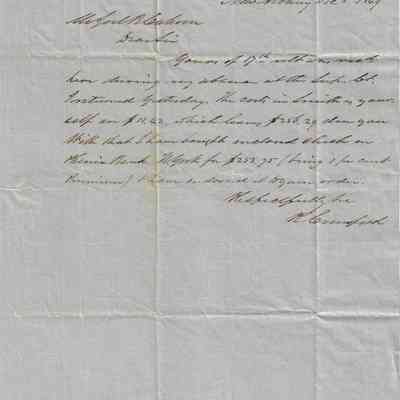 New Albany Dec 1869
Dear Sir
Yours of 17th ult was rec'd
here during my absence at the Sup. Ct.
I returned yesterday. The costs in Smith vs your-
self are $11.62, which leaves $256.29 due you
With that I have bought enclosed check on
Bank N York for $253.75 (being 1 per cent
Premium) I have endorsed it to your order.
Respectfully &c
R Crawford